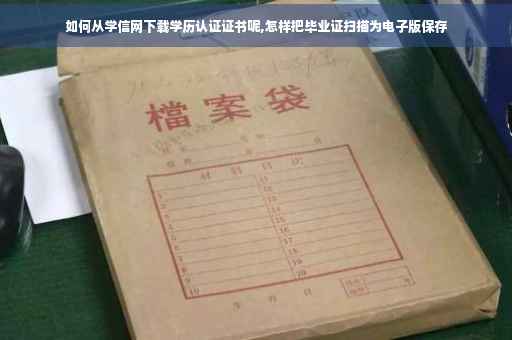 如何从学信网下载学历认证证书呢,怎样把毕业证扫描为电子版保存
檔案袋
材料目次
1 11
2 12
3 13
4 14
5 15
6 16
7 17
8 18
9 19
10 20
年 月 日